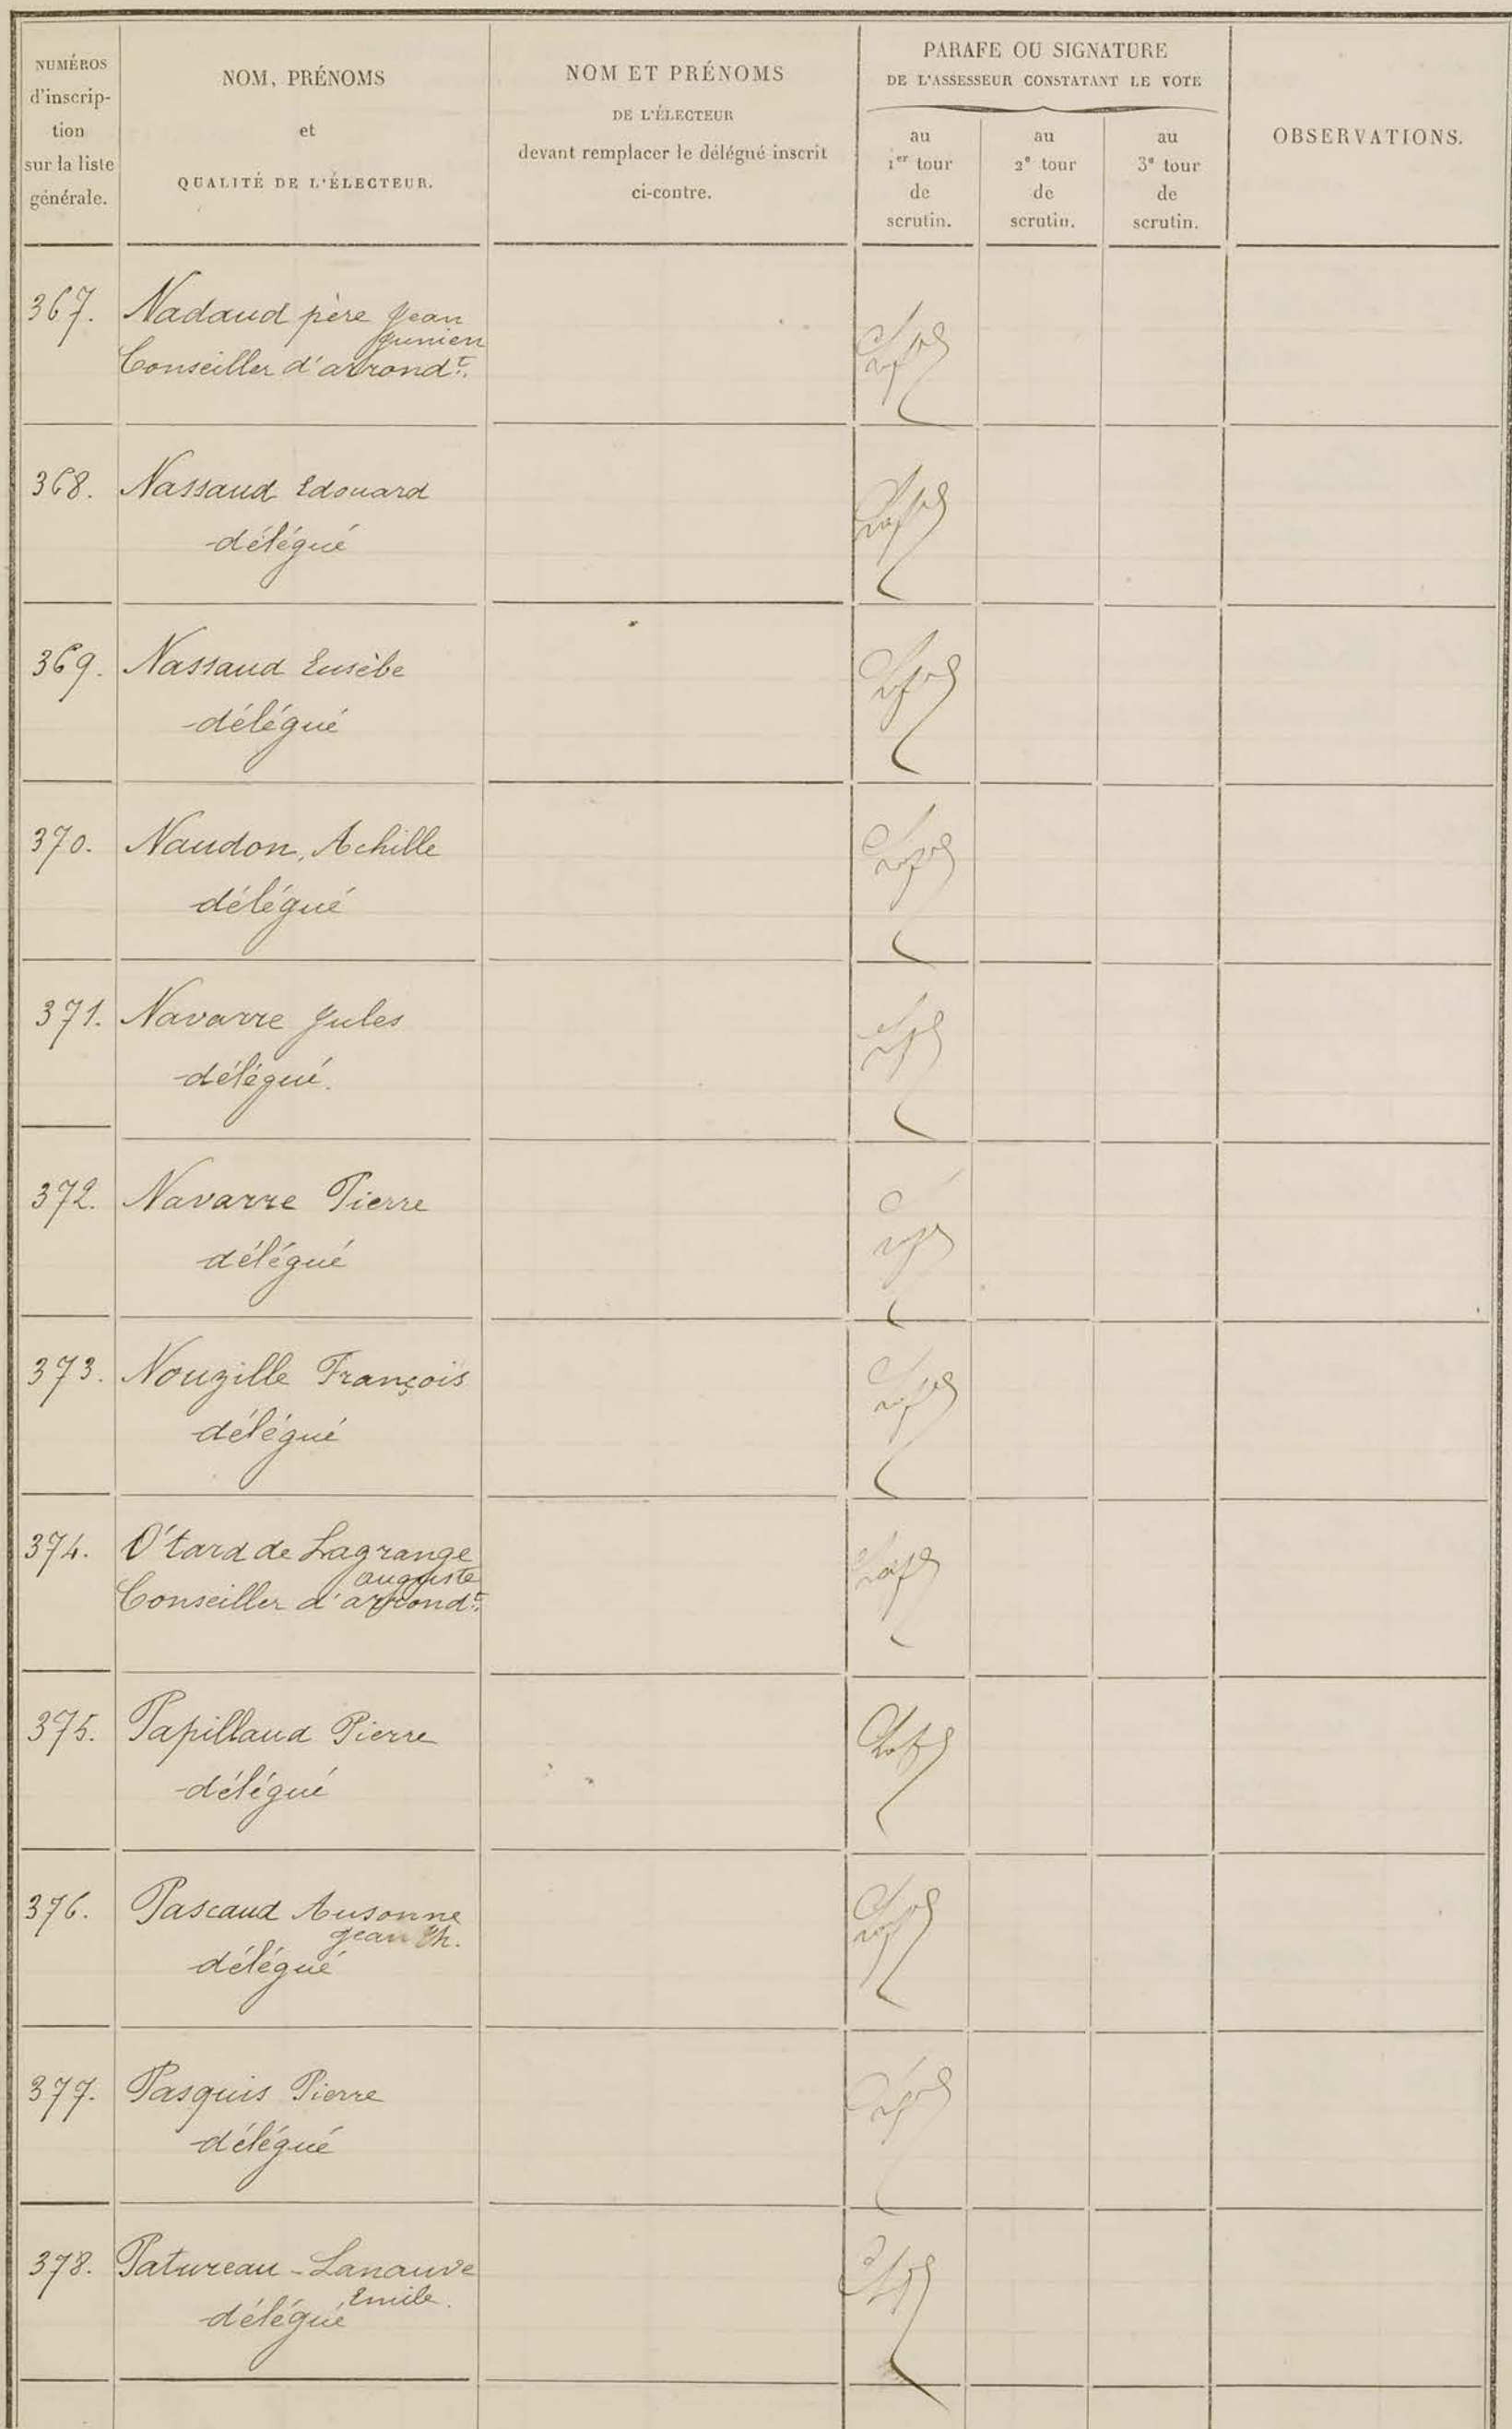 NUMÉROS
d'inscrip-
tion
sur la liste
générale.
NOM, PRÉNOMS
et
QUALITÉ DE L'ÉLECTEUR.
NOM ET PRÉNOMS
DE L'ÉLECTEUR
devant remplacer le délégué inscrit
ci-contre.
PARAFE OU SIGNATURE
DE L'ASSESSEUR CONSTATANT LE VOTE
au
1er tour
de
scrutin.
au
2e tour
de
scrutin.
au
3e tour
de
scrutin.
OBSERVATIONS.
367. Nadaud père Jean
Junien
Conseiller d'arrondt.
368. Nassaud Edouard
délégué
369. Nassaud Eusèbe
délégué
370. Naudon, Achille
délégué
371. Navarre Jules
délégué.
372. Navarre Pierre
délégué
373. Nouzille François
délégué
374. O'tard de Lagrange
auguste
Conseiller d'arrondt.
375. Papillaud Pierre
délégué
376. Pascaud Ausonne
Jean Th.
délégué
377. Pasquis Pierre
délégué
378. Patureau-Lanauve
Emile.
délégué